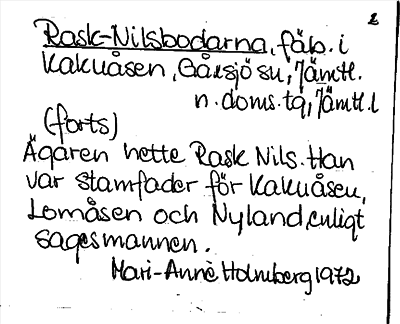 2
Rask-Nilsbodarna, fäb. i
Kakuåsen, Gåxsjö sn, Jämtl.
n. doms. tg, Jämtl. l
(forts)
Ägaren hette Rask Nils. Han
var stamfader för Kakuåsen,
Lomåsen och Nyland, enligt
sagesmannen.
Mari-Anne Holmberg 1972